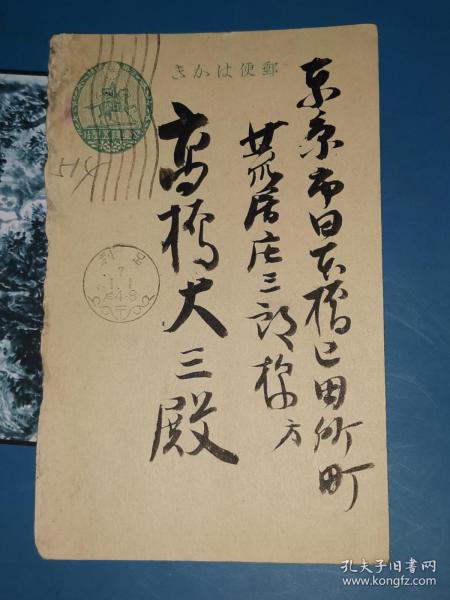 郵便はかき
東京市日本橋区田所町
荒居庄三郎様方
高橋大三殿
7
1.1
4-8
孔夫子旧书网
www.kongfz.com